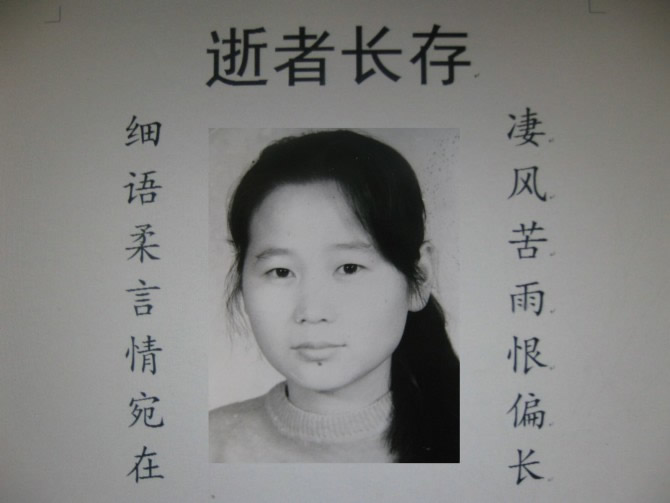 逝者长存
凄风苦雨恨偏长
细语柔言情宛在